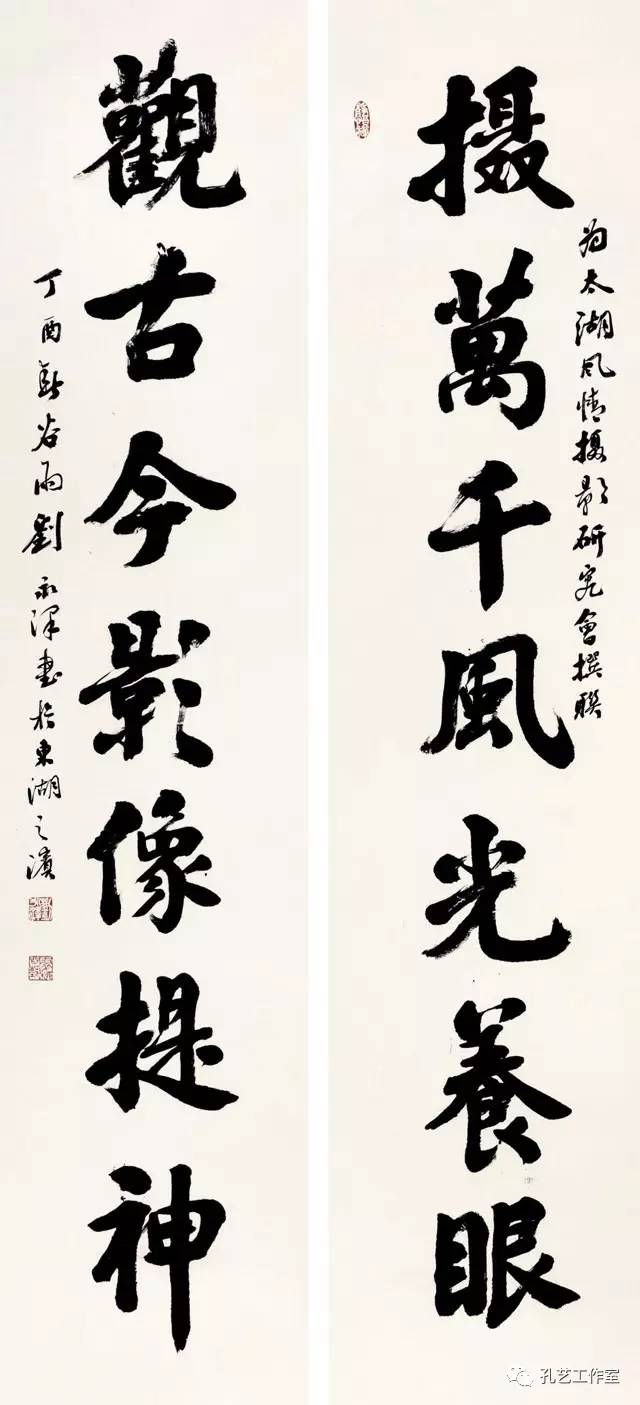 为太湖风情摄影研究會撰联
摄萬千風光養眼
觀古今影像提神
丁酉年谷雨劉永澤书於東湖之濱
孔艺工作室